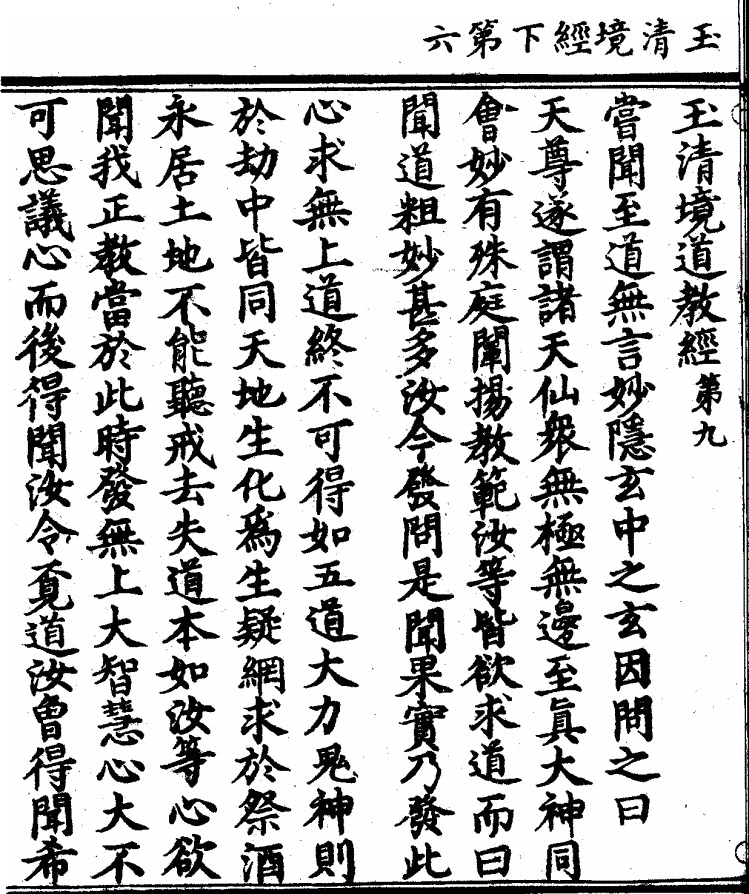 玉清境經下第六
玉清境道教經第九
嘗聞至道無言妙隱玄中之玄因問之曰
天尊遂謂諸天仙衆無極無邊至眞大神同
會妙有殊庭闡揚教範汝等皆欲求道而曰
聞道粗妙甚多汝今發問是聞果實乃發此
心求無上道終不可得如五道大力鬼神則
於劫中皆同天地生化爲生疑網求於祭酒
永居土地不能聽戒去失道本如汝等心欲
聞我正教當於此時發無上大智慧心大不
可思議心而後得聞汝令覔道汝曾得聞希